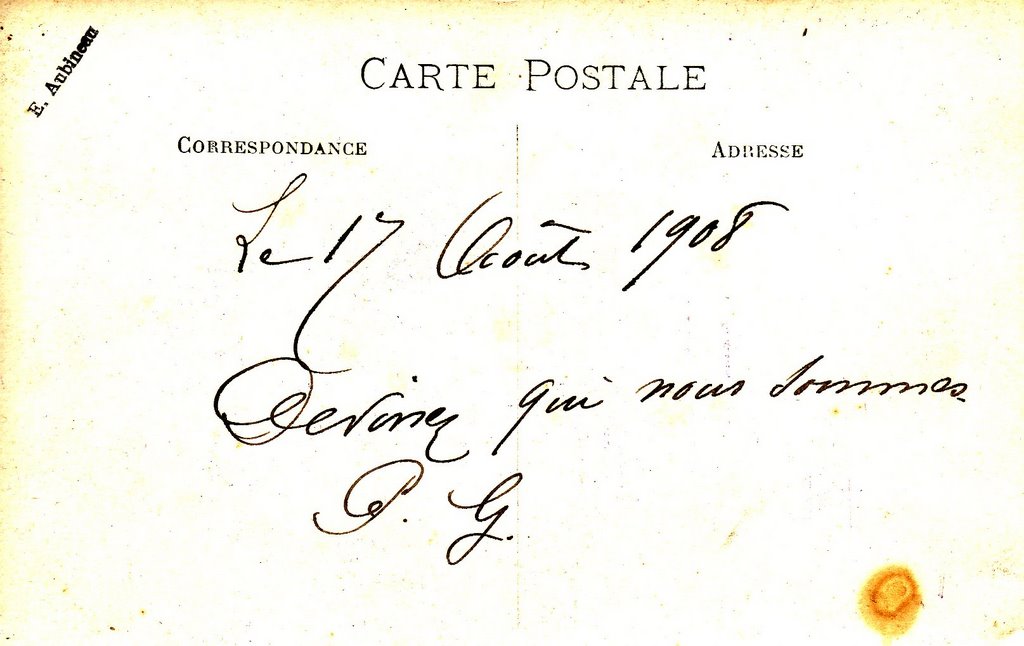 E. Aubineau
CARTE POSTALE
CORRESPONDANCE
ADRESSE
Le 17 Août 1908
Devinez qui nous sommes
P. G.